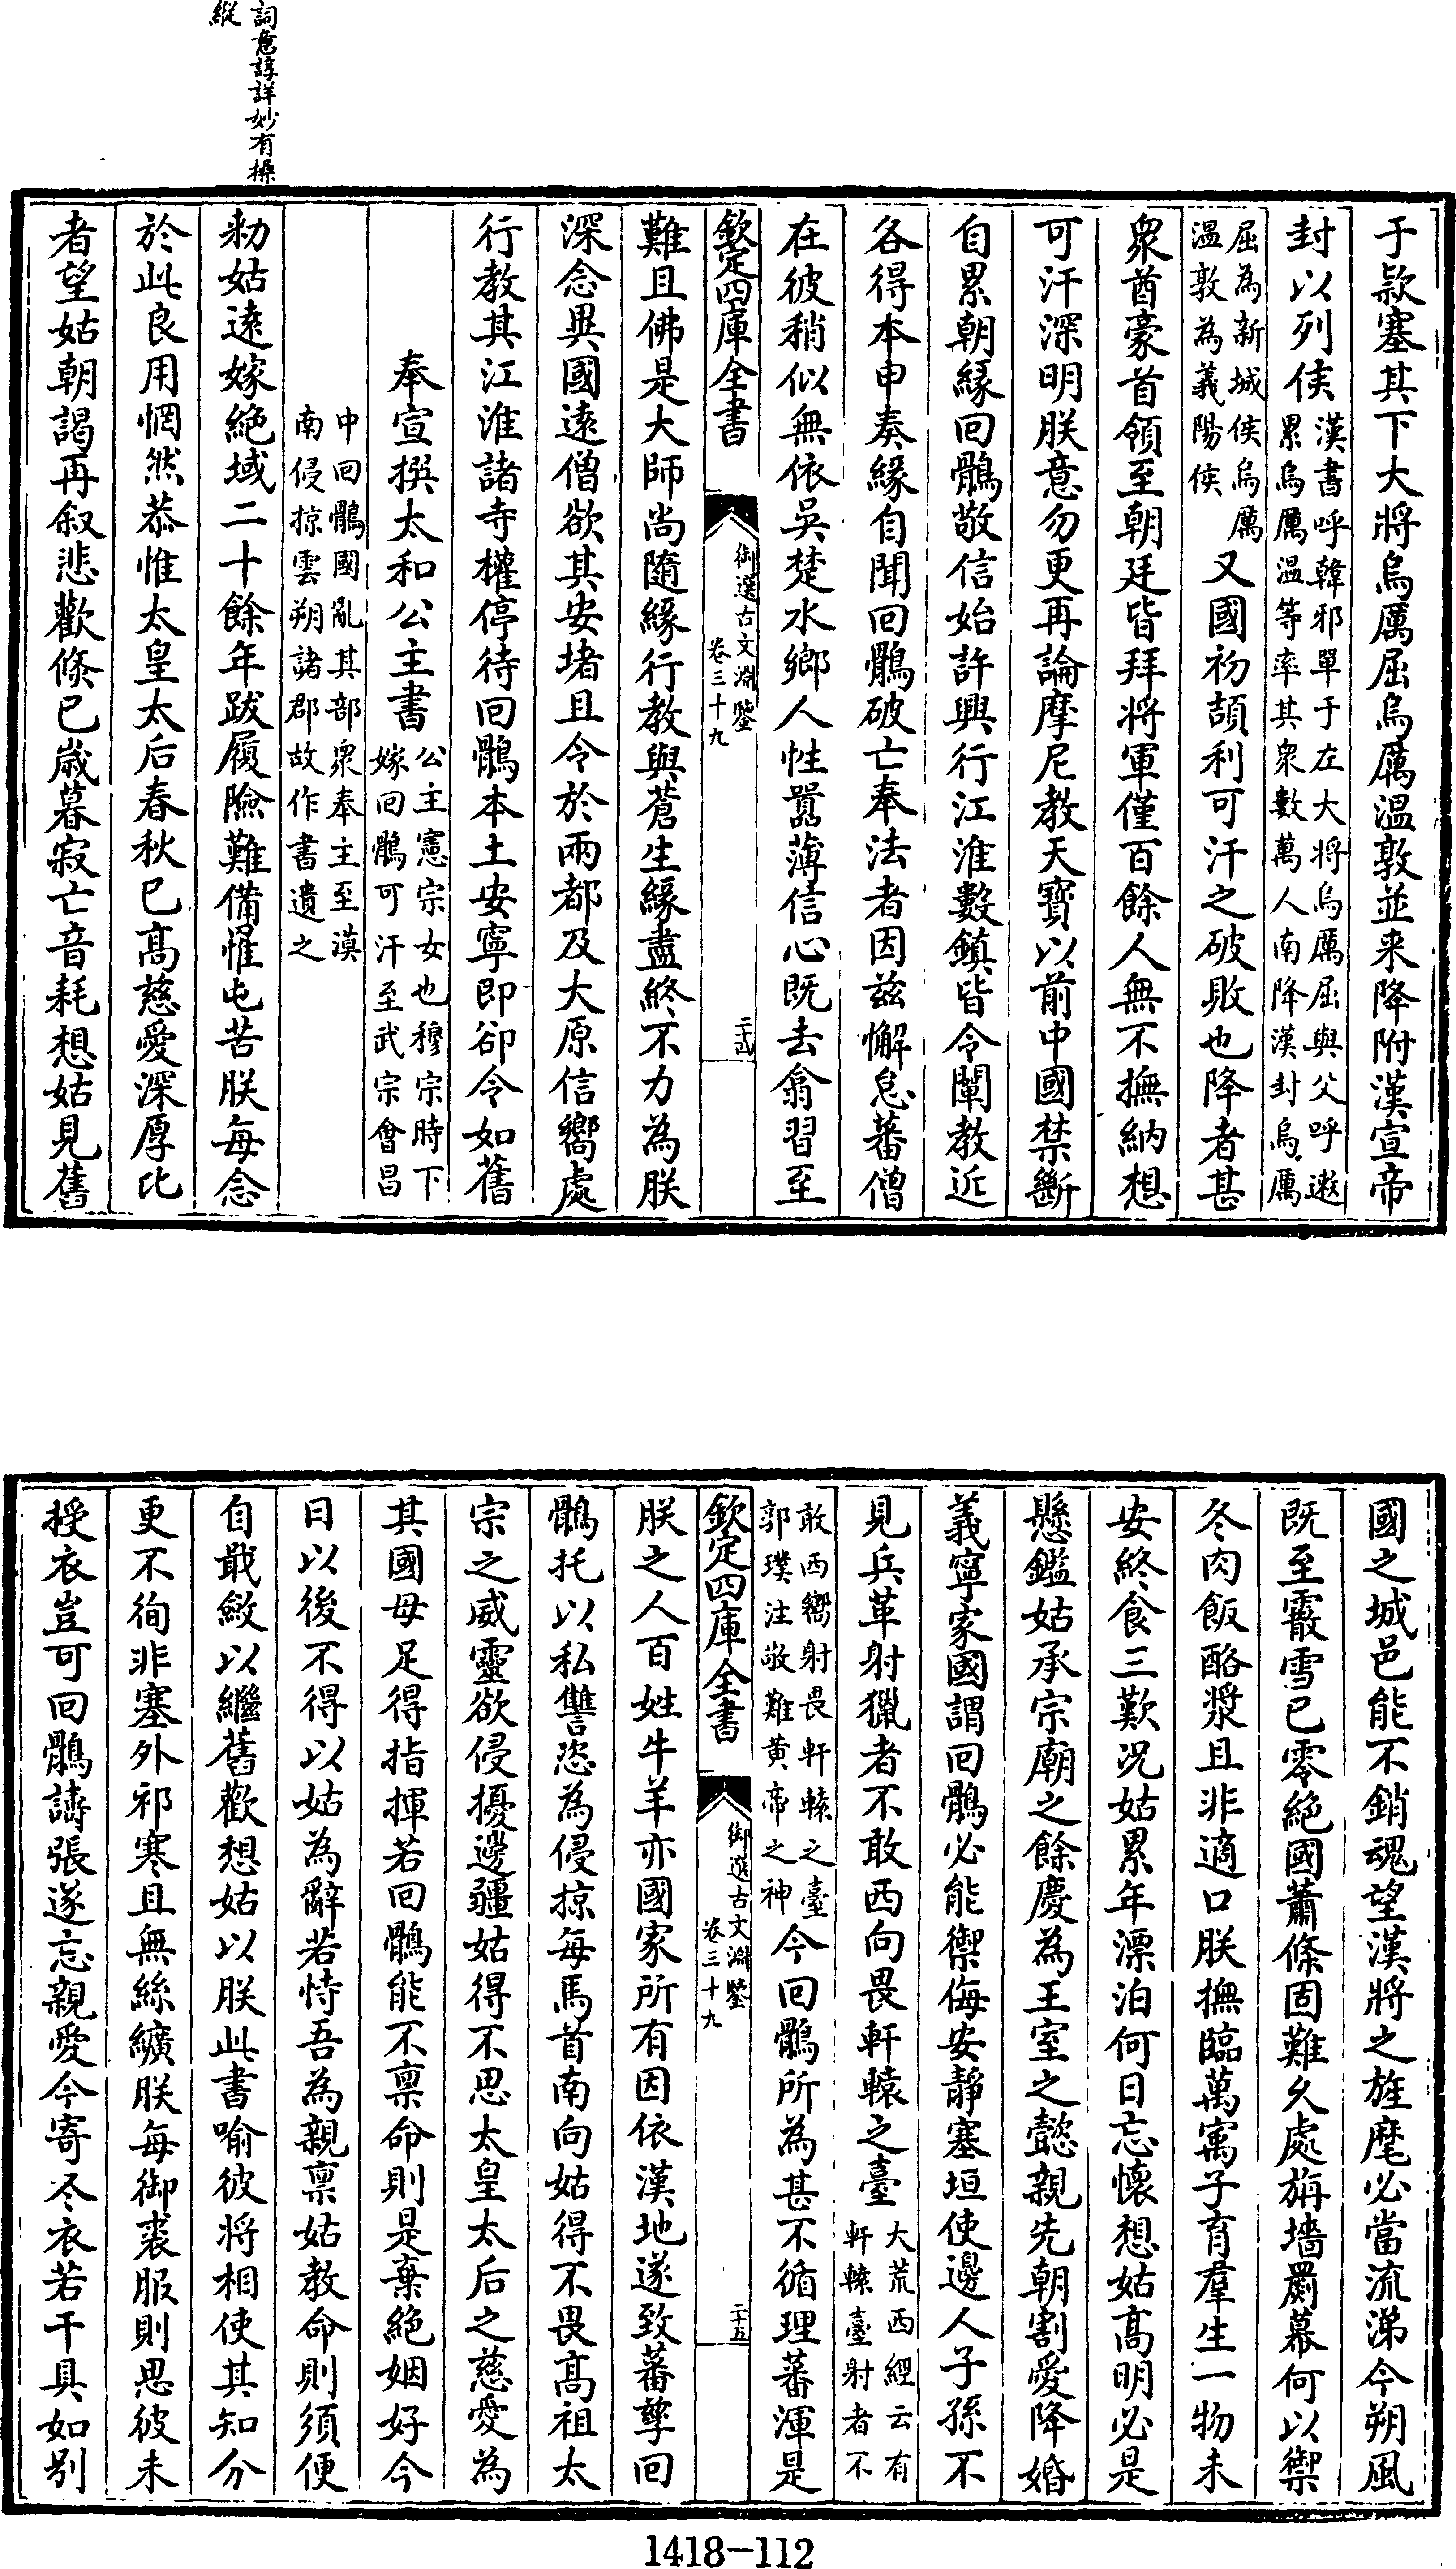 詞意諄詳妙有操
縱
于款塞其下大將烏厲屈烏厲温敦並来降附漢宣帝
封以列侯漢書呼韓邪單于左大將烏厲屈與父呼遬
累烏厲温等率其衆數萬人南降漢封烏厲
屈為新城侯烏厲
温敦為義陽侯又國初頡利可汗之破敗也降者甚
衆酋豪首領至朝廷皆拜將軍僅百餘人無不撫納想
可汗深明朕意勿更再論摩尼教天寳以前中國禁斷
自累朝緣回鶻敬信始許興行江淮數鎮皆令闡教近
各得本申奏緣自聞回鶻破亡奉法者因兹懈怠蕃僧
在彼稍似無依吳楚水鄉人性嚚薄信心既去翕習至
欽定四庫全書
御選古文淵鑒
卷三十九
二十四
難且佛是大師尚隨緣行教與蒼生緣盡終不力為朕
深念異國遠僧欲其安堵且令於兩都及大原信嚮處
行教其江淮諸寺權停待回鶻本土安寧即卻令如舊
奉宣撰太和公主書公主憲宗女也穆宗時下
嫁回鶻可汗至武宗會昌
中回鶻國亂其部衆奉主至漠
南侵掠雲朔諸郡故作書遺之
勑姑遠嫁絶域二十餘年跋履險難備罹屯苦朕每念
於此良用惘然恭惟太皇太后春秋已高慈愛深厚比
者望姑朝謁再叙悲歡倐已歲暮寂亡音耗想姑見舊
國之城邑能不銷魂望漢將之旌麾必當流涕今朔風
既至霰雪已零絶國蕭條固難久處旃墻罽幕何以禦
冬肉飯酪漿且非適口朕撫臨萬㝢子育羣生一物未
安終食三歎況姑累年漂泊何日忘懷想姑高明必是
懸鑑姑承宗廟之餘慶為王室之懿親先朝割愛降婚
義寧家國謂回鶻必能禦侮安靜塞垣使邊人子孫不
見兵革射獵者不敢西向畏軒轅之臺大荒西經云有
軒轅臺射者不
敢西嚮射畏軒轅之臺
郭璞注敬難黄帝之神今回鶻所為甚不循理蕃渾是
欽定四庫全書
御選古文淵鑒
卷三十九
二十五
朕之人百姓牛羊亦國家所有因依漢地遂致蕃孳回
鶻托以私讐恣為侵掠每馬首南向姑得不畏高祖太
宗之威靈欲侵擾邊疆姑得不思太皇太后之慈愛為
其國母足得指揮若回鶻能不禀命則是棄絶姻好今
日以後不得以姑為辭若恃吾為親禀姑教命則須便
自戢斂以繼舊歡想姑以朕此書喻彼將相使其知分
更不徇非塞外祁寒且無絲纊朕每御裘服則思彼未
授衣豈可回鶻譸張遂忘親愛今寄冬衣若干具如别
1418-112